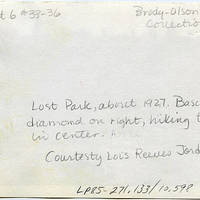 t 6 #33-36
Brody-Olson
Collectio
Lost Park, about 1927. Base
diamond on right, hiking t
in center.
Courtesty Lois Reeves Jord
LP85-271.133/10,598